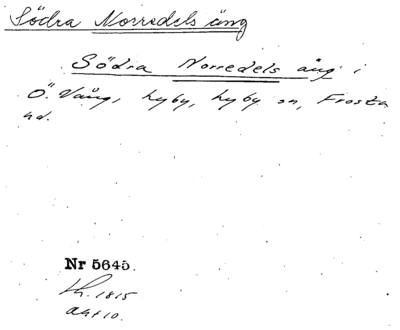 Södra Norredels äng
Södra Norredels äng i
Ö. Vång, Hyby, Hyby sn, Frosta
hd.
Nr 5645.
Lh. 1815
akt 10.